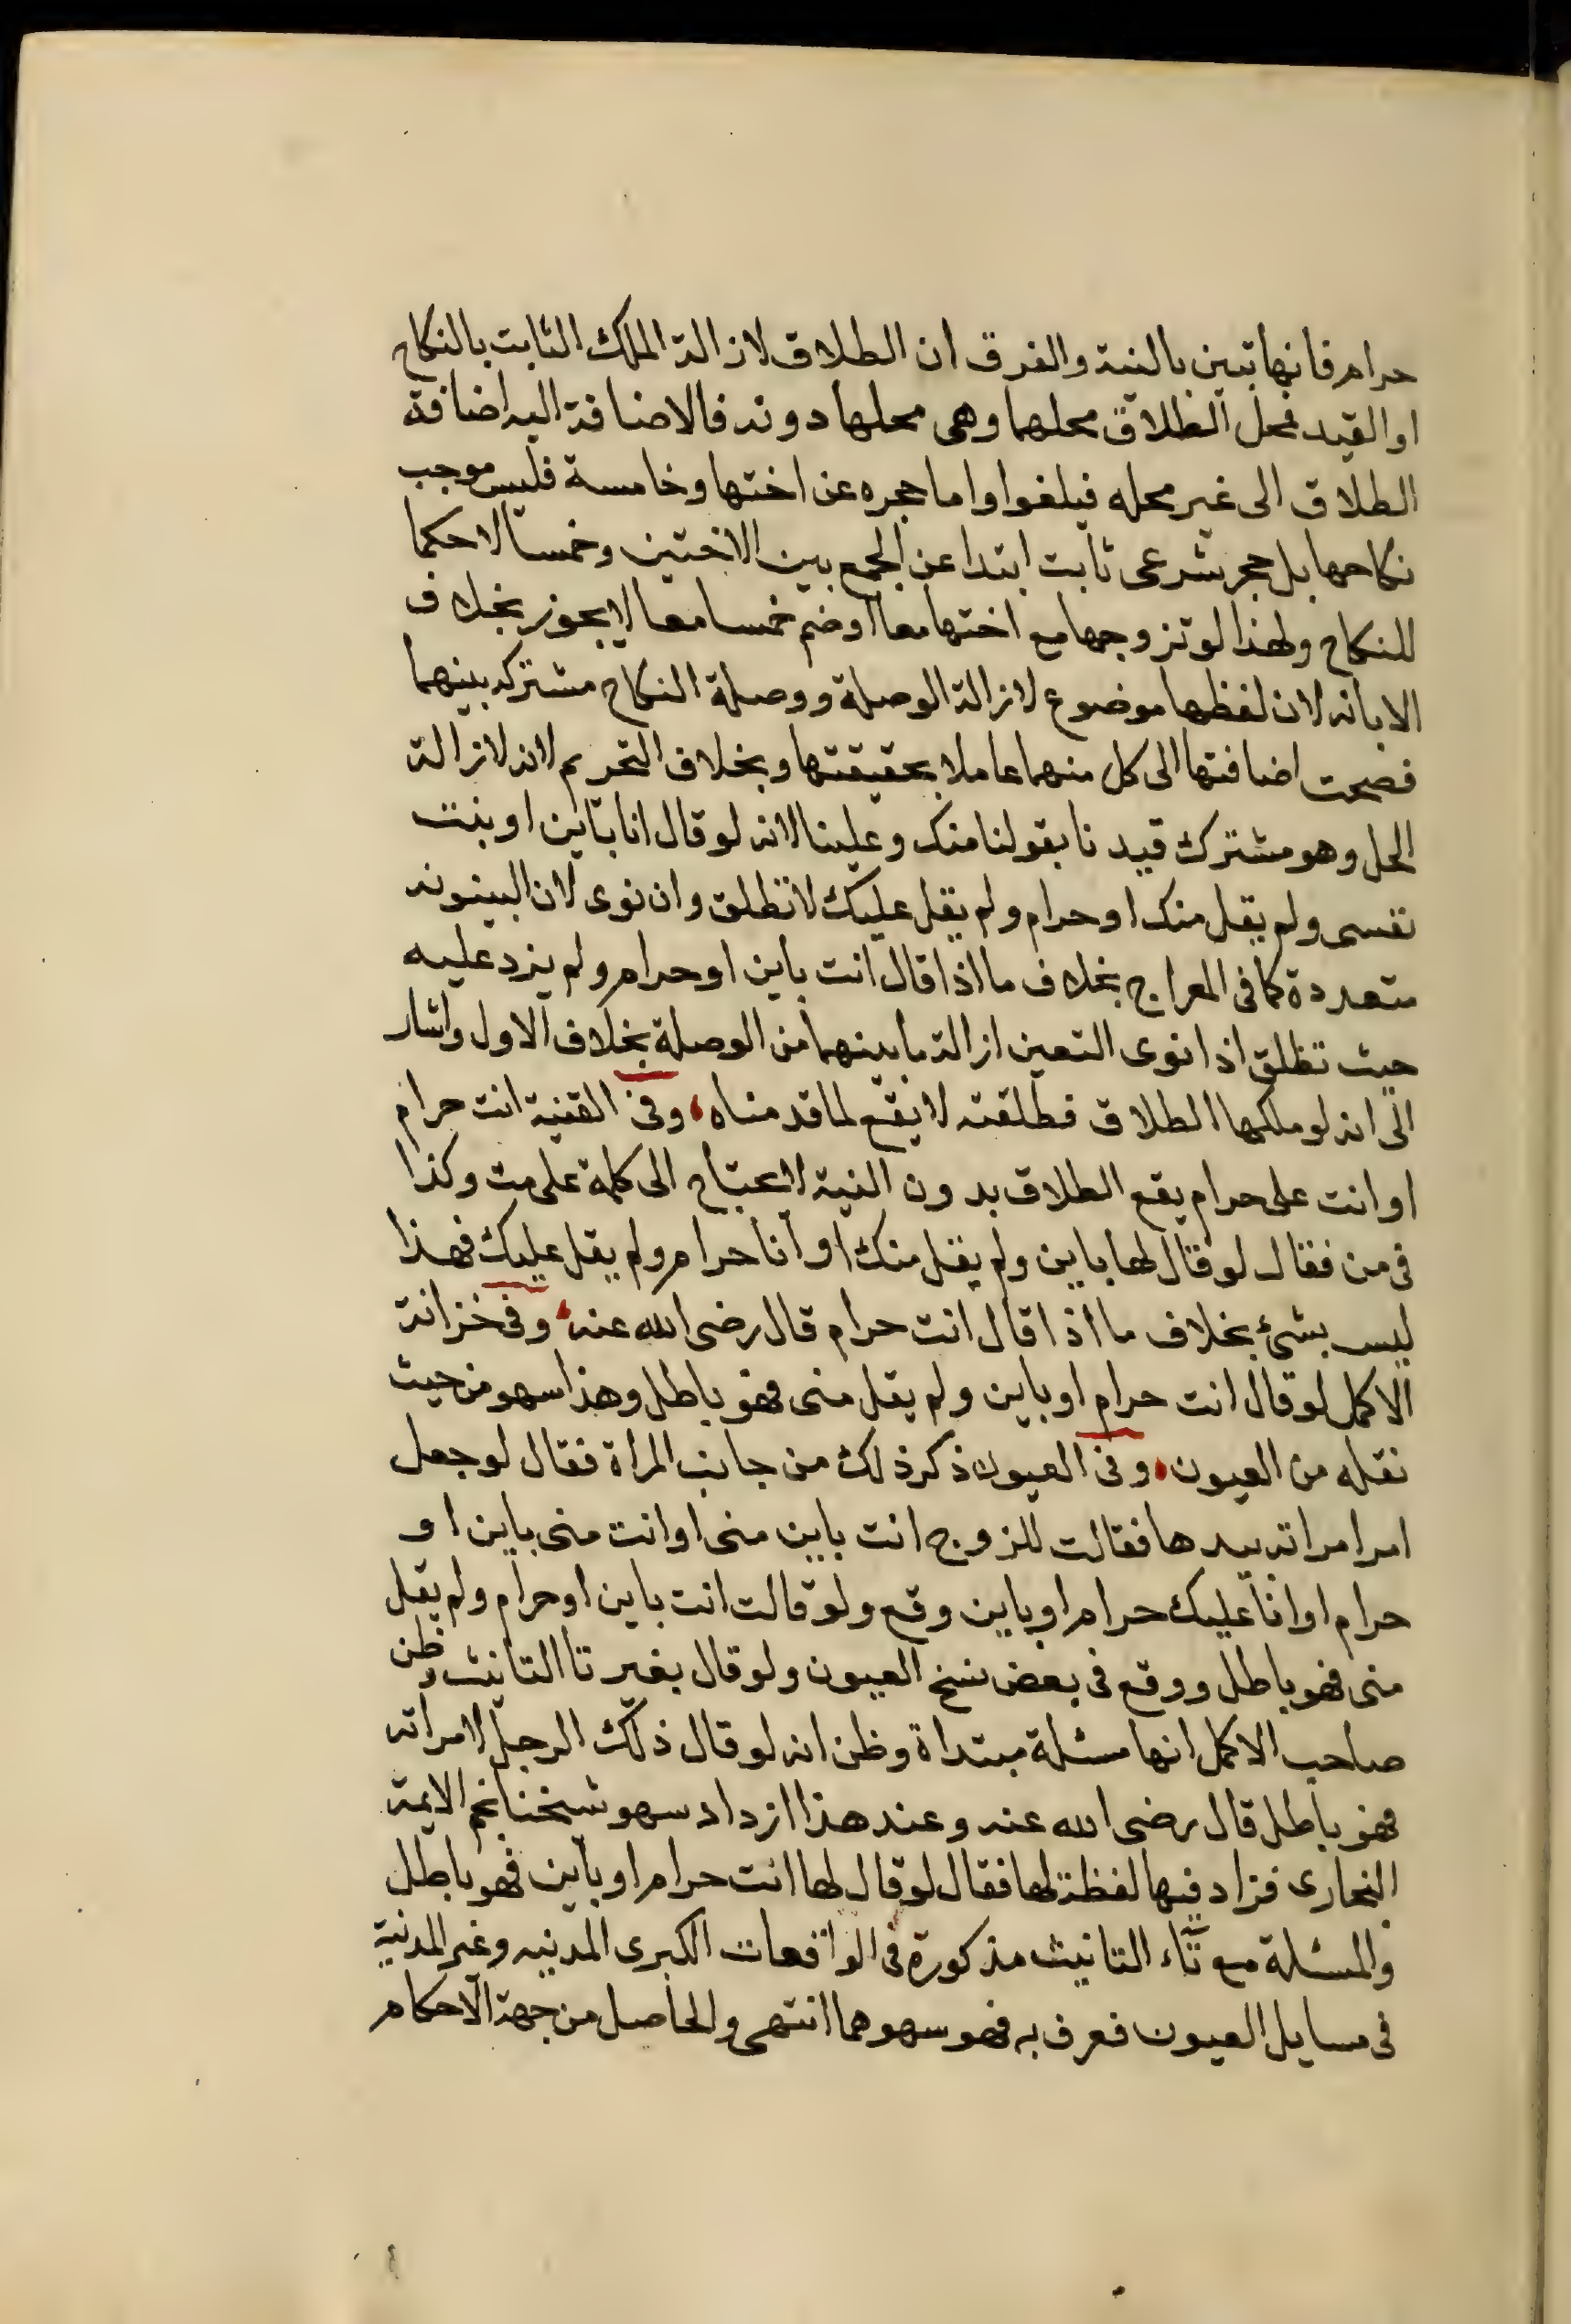 حرام فانها تبين بالنية والفرق ان الطلاق لازالة الملك الثابت بالنكاح
او القيد فمحل الطلاق محلهما وهى محلها دونه فالاضافة اليه اضافة
الطلاق الى غير محله فيلغوا واما حجره عن اختها وخامسة فليس موجب
نكاحها بل حجر شرعى ثابت ابتدا عن الجمع بين الاختين وخمسا لا حكما
للنكاح ولهذا لو تزوجها مع اختها معا او ضم خمسا معا لا يجوز بخلاف
الابانه لان لفظها موضوع لازالة الوصلة ووصلة النكاح مشتركه بينهما
فصحت اضافتها الى كل منهما عاملا بحقيقتها وبخلاف التحريم لانه لازالة
الحل وهو مشترك قيدنا بقولنا منك وعلينا لانه لو قال انا باين او بنت
نفسى ولم يقل منك او حرام ولم يقل عليك لا تطلق وان نوى لان البينونه
متعددة كما فى المعراج بخلاف ما اذا قال انت باين او حرام ولم يزد عليه
حيث تطلق اذا نوى التعين ازالة ما بينهما من الوصلة بخلاف الاول واشار
الى انه لو ملكها الطلاق فطلقته لا يقع لما قدمناه، وفى القنية انت حرام
او انت على حرام يقع الطلاق بدون النية لا يحتاج الى كلمة على مت وكذا
فى من فقال لو قال لها باين ولم يقل منك او انا حرام ولم يقل عليك فهذا
ليس بشئ بخلاف ما اذا قال انت حرام قال رضى الله عنه، وفى خزانة
الاكمل لو قال انت حرام او باين ولم يقل منى فهو باطل وهذا سهو من حيث
نقله من العيون، وفى العيون ذكر ذلك من جانب المراة فقال لو جعل
امر امراته بيدها فقالت للزوج انت باين منى او انت منى باين او
حرام او انا عليك حرام او باين وقع ولو قالت انت باين او حرام ولم يقل
منى فهو باطل ووقع فى بعض نسخ العيون ولو قال بغير تا التانيث وظن
صاحب الاكمل انها مسئلة مبتداة وظن انه لو قال ذلك الرجل لامراته
فهو باطل قال رضى الله عنه وعند هذا ازداد سهو شيخنا نجم الايمة
النجارى فزاد فيها لفظة لها فقال لو قال لها انت حرام او باين فهو باطل
والمسئلة مع تاء التانيث مذكورة فى الواقعات الكبرى المدنيه وغير المدنية
فى مسايل العيون فعرف به فهو سهوهما انتهى والحاصل من جهة الاحكام